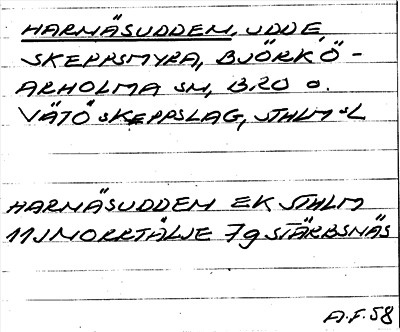 HARNÄSUDDEN, UDDE,
SKEPPSMYRA, BJÖRKÖ-
ARHOLMA SN, B.20 o.
VÄTÖ SKEPPSLAG, STHLM SL
HARNÄSUDDEN EK STHLM
11J NORRTÄLJE 7g STÄRBSNÄS
A.F. 58